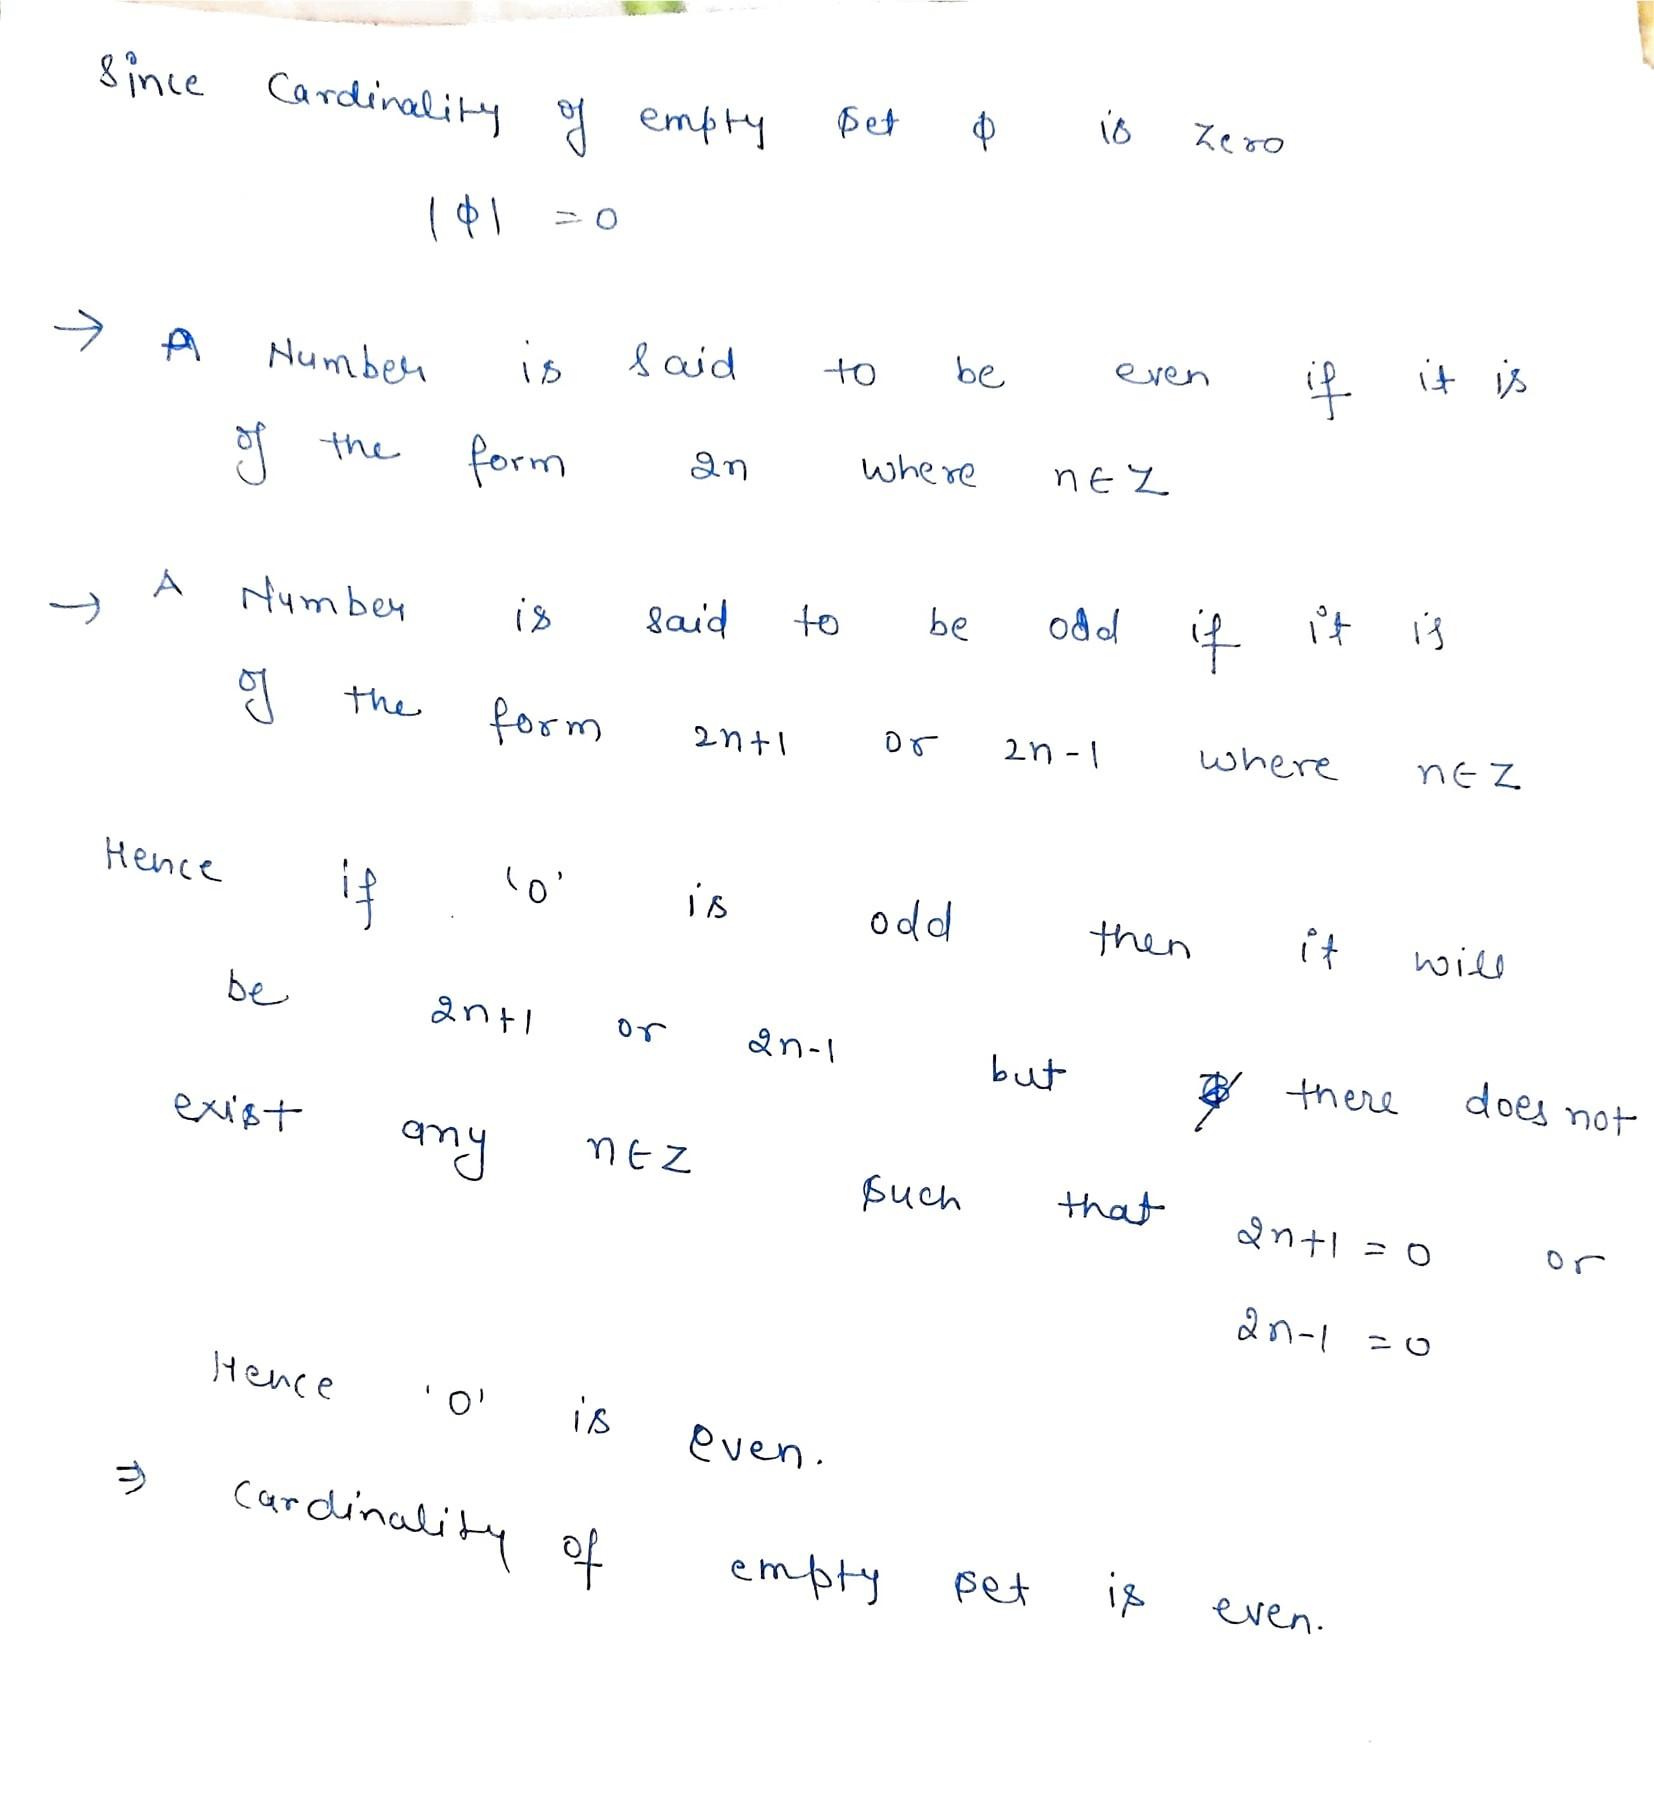 Since Cardinality of empty set ϕ is zero
|ϕ| = 0
→ A Number is said to be even if it is
of the form 2n where n∈Z
→ A Number is said to be odd if it is
of the form 2n+1 or 2n-1 where n∈Z
Hence if '0' is odd then it will
be 2n+1 or 2n-1 but there does not
exist any n∈Z such that 2n+1 = 0 or
2n-1 = 0
Hence '0' is even.
⇒ Cardinality of empty set is even.